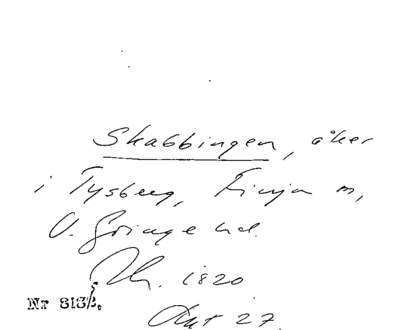 Skabbingen, åker
i Tysberg, Finja sn,
V. Göinge hd.
1820
Nr 313
Akt 27.